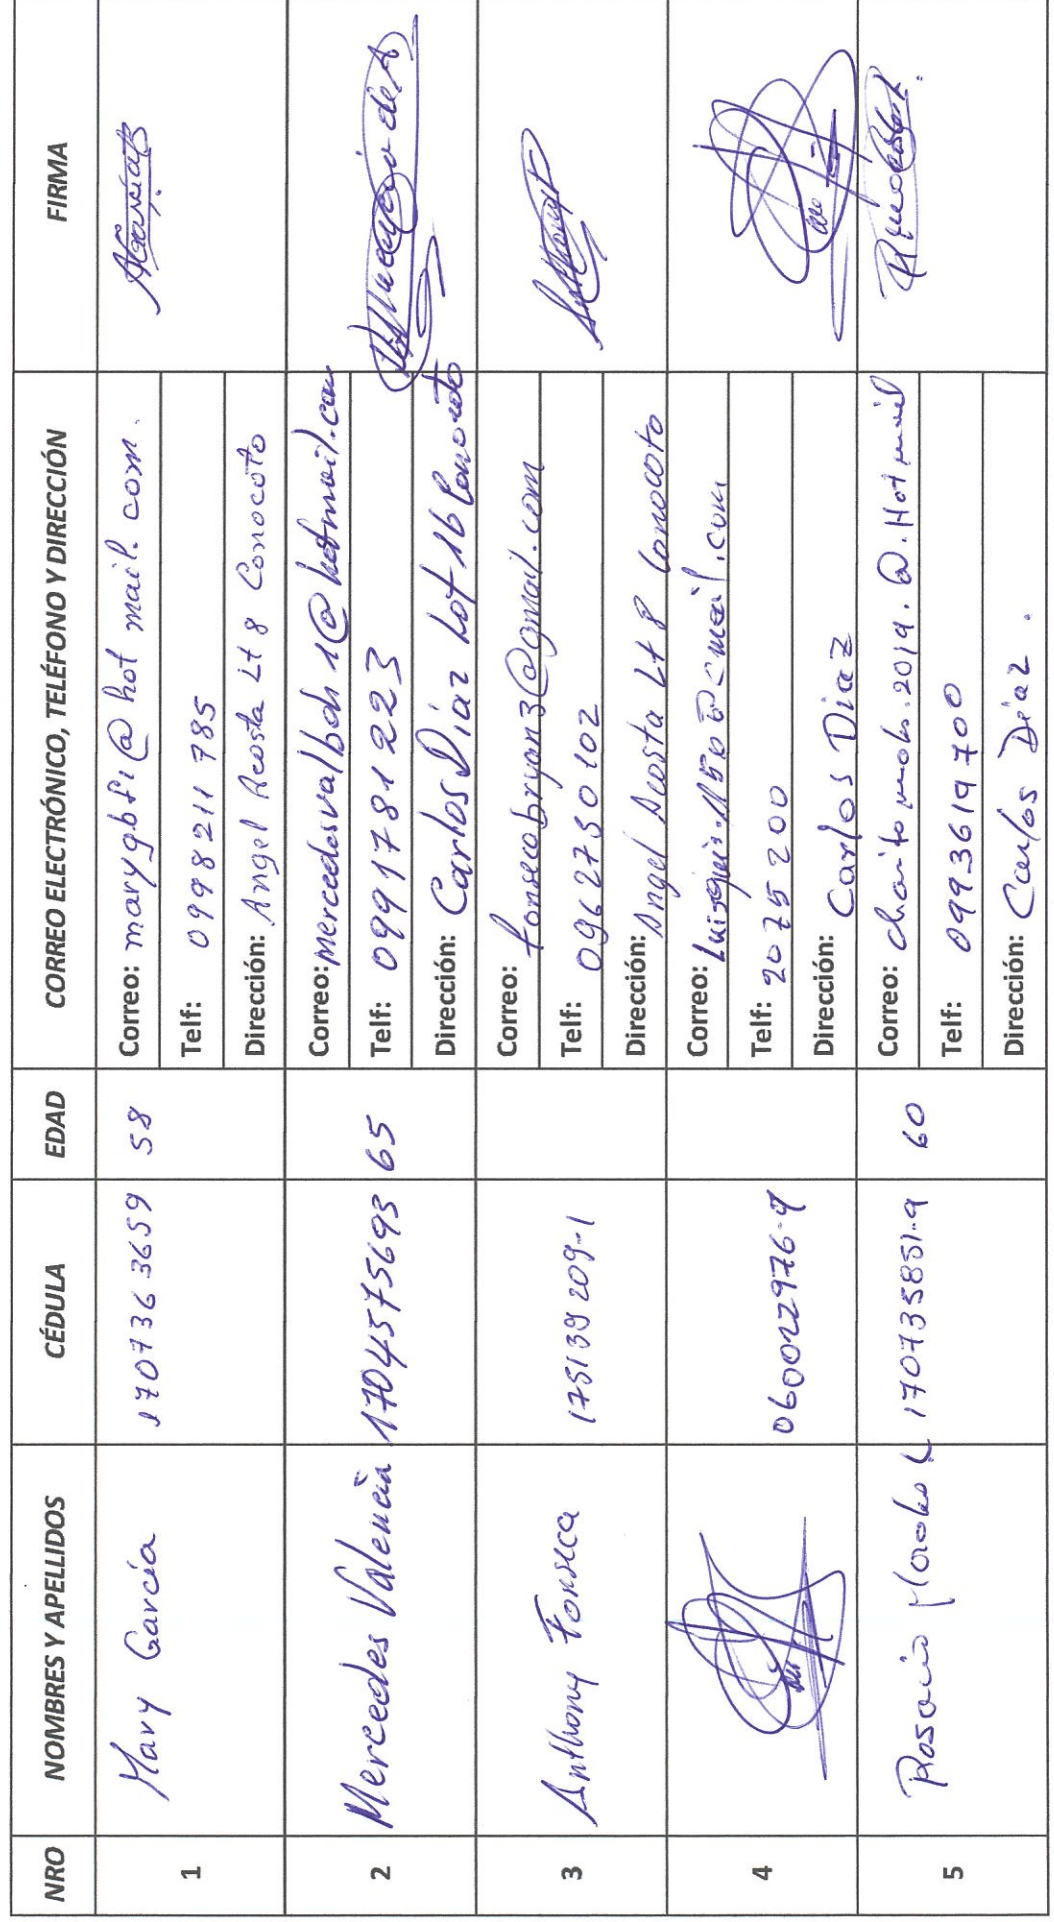 NRO NOMBRES Y APELLIDOS CÉDULA EDAD CORREO ELECTRÓNICO, TELÉFONO Y DIRECCIÓN FIRMA
1 Mary García 1707363659 58
Correo: marygbf1@hot mail. com.
Telf: 0998211785
Dirección: Angel Acosta Lt 8 Conocoto
2 Mercedes Valencia 1704575693 65
Correo: mercedesvalbdn1@hotmail.com
Telf: 0991781223
Dirección: Carlos Díaz Lot 16 Conocoto
3 Anthony Fonseca 175139209-1
Correo: fonsecabryan3@gmail.com
Telf: 0962750102
Dirección: Angel Acosta Lt 8 Conocoto
Anthony
4 060022976-9
Correo:
Telf: 2075200
Dirección: Carlos Diaz
5 Rosario 170735851-9 60
Correo: 2019.@.Hotmail
Telf: 0993619700
Dirección: Carlos Díaz.